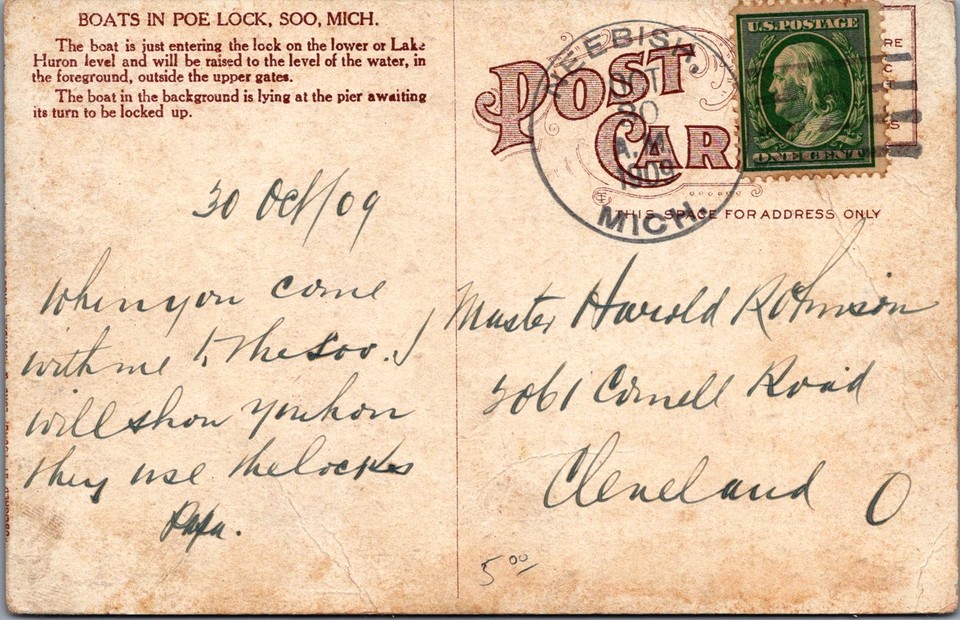 BOATS IN POE LOCK, SOO, MICH.
The boat is just entering the lock on the lower or Lake
Huron level and will be raised to the level of the water, in
the foreground, outside the upper gates.
The boat in the background is lying at the pier awaiting
its turn to be locked up.
POST
CAR
U.S. POSTAGE
ONE CENT
NEEBISH,
OCT
30
A.M.
1909
MICH.
THIS SPACE FOR ADDRESS ONLY
30 Oct/09
When you come
with me to the Soo. I
will show you how
they use the locks
Papa.
Master Harold Robinson
2061 Cornell Road
Cleveland O
5.00